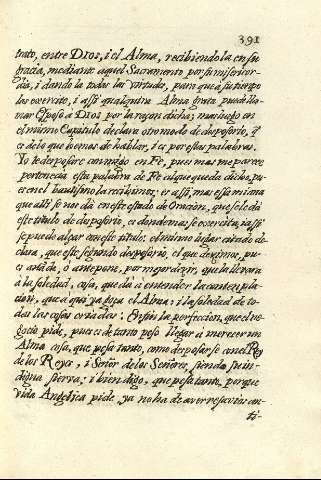 391
trato, entre Dios, i el Alma, recibiendola en su
gracia, mediante aquel Sacramento por su misericor-
dia, i dandola todas las virtudes, para que a su tiempo
los exercite, i assi qualquira Alma grata puede lla-
mar Esposo à Dios por la raçon dicha; mas hago en
el mismo Capitulo declara otro modo de desposorio, q̃
es de lo que hemos de hablar, i es por estas palabras.
Yo te desposare conmigo en Fe, pues mas me parece
pertenecia esta palabra de Fe el que queda dicho, pu-
es en el bautismo la recibimos; es assi, mas essa misma
que alli se nos diò en este estado de Oracion, que se le da
este titulo de desposorio, es donde mas se exercita, i assi
se puede alçar con este titulo: el mismo lugar citado de-
clara, que este segundo desposorio, el que decimos, pu-
es añade, ò antepone, por mejor decir, que la llevara
à la soledad, cosa, que da à entender la contempla-
cion, que à que ya toca el Alma; i la soledad de to-
das las cosas criadas: En fin la perfeccion, que el ne-
gocio pide, pues es de tanto peso llegar à merecer un
Alma cosa, que pesa tanto, como desposarse con el Rey
de los Reyes, i Señor de los Señores, siendo su in-
digna sierva; i bien digo, que pesa tanto, porque
vida Angelica pide ya no ha de aver resavios an-
ti-